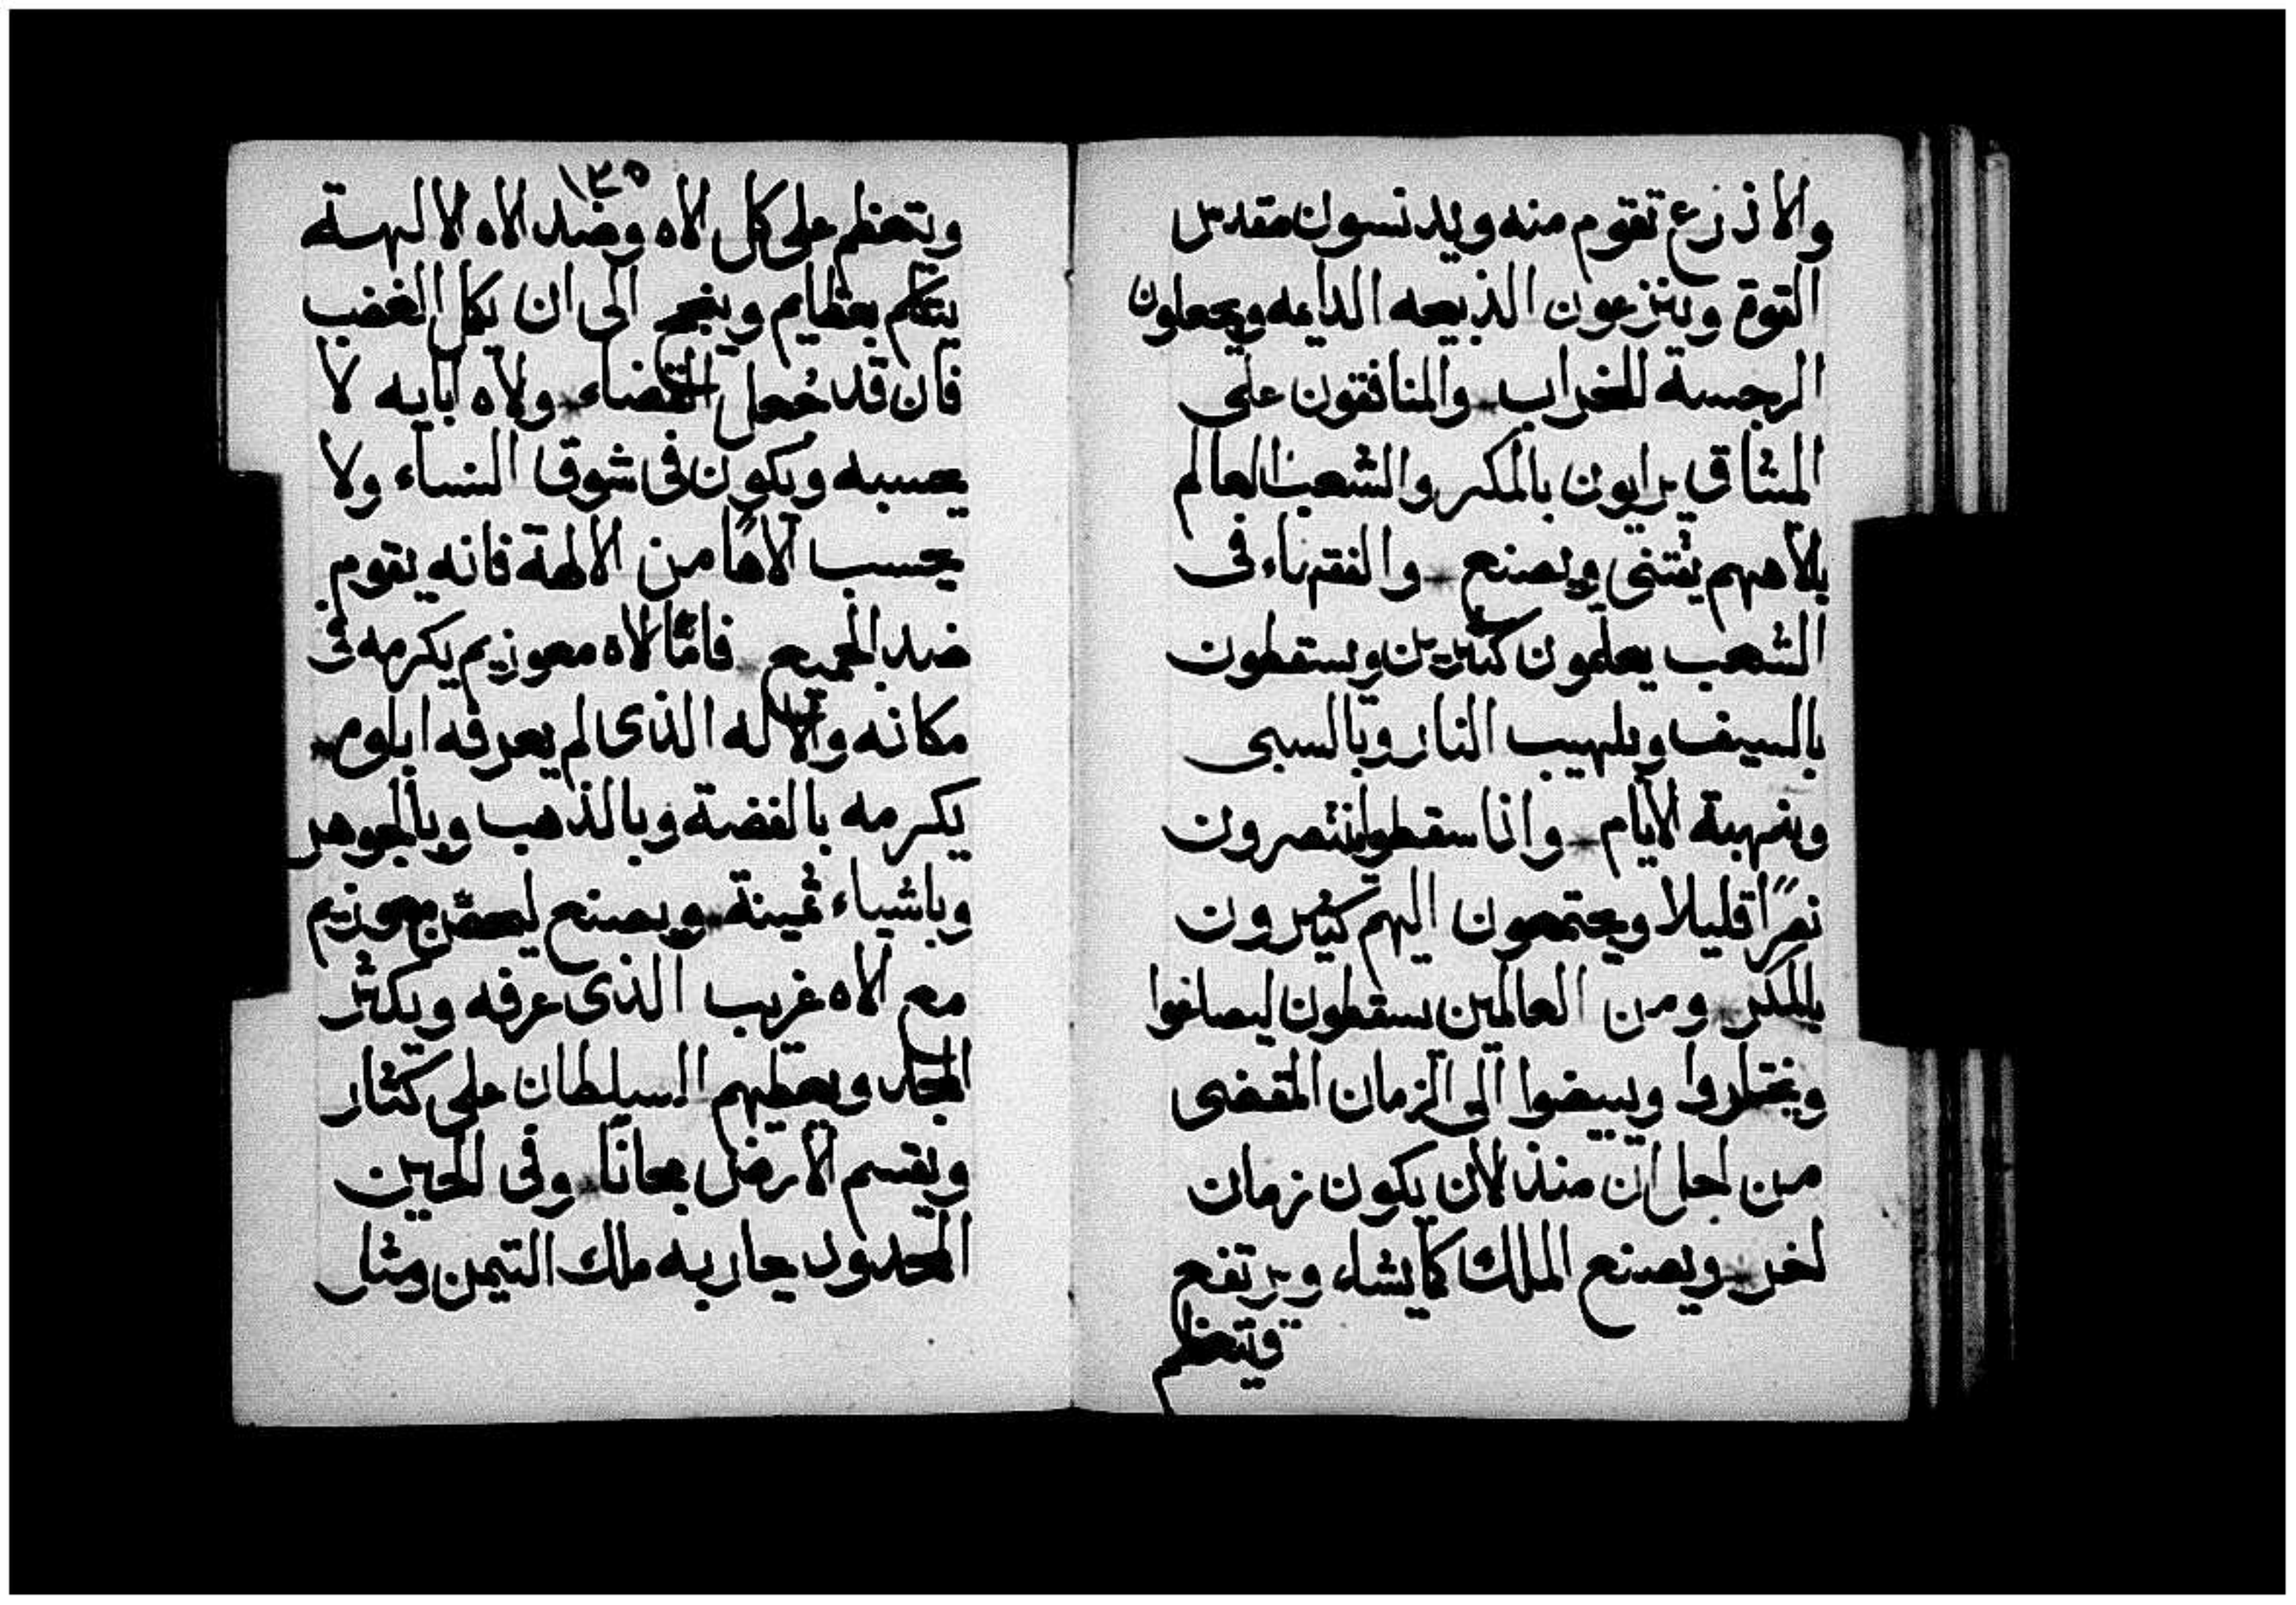 والاذرع تقوم منه ويدنسون مقدس
القوة وينزعون الذبيحه الدايمه ويجعلون
الرجسة للخراب والمنافقون على
الميثاق يرايون بالمكر والشعب العالم
بالاههم يقتنى ويصنع والفقهاء فى
الشعب يعلمون كثيرين ويسقطون
بالسيف وبلهيب النار وبالسبى
وبنهبة الايام واذا سقطوا ينتصرون
نصرًا قليلا ويجتمعون اليهم كثيرون
بالمكر ومن العالمين يسقطون ليصاغوا
ويختاروا ويبيضوا الى الزمان المقضى
من اجل ان منذ الان يكون زمان
اخر ويصنع الملك كما يشاء ويرتفع
ويتعظم
١٣٥
ويتعظم على كل الاه وضد الاه الالهة
يتكلم بعظايم وينجح الى ان يكمل الغضب
فان قد جُعل القضاء ولاه آبايه لا
يحسبه ويكون فى شوق النساء ولا
يحسب الاهًا من الالهة فانه يقوم
ضد الجميع فامّا الاه معوزيم يكرمه فى
مكانه والاله الذى لم يعرفه اباوه
يكرمه بالفضة وبالذهب وبالجوهر
وباشياء ثمينة ويصنع ليحصّن معوزيم
مع الاه غريب الذى عرفه ويكثر
المجد ويعطيهم السلطان على كثار
ويقسم الارض مجانًا وفى الحين
المحدود يحاربه ملك التيمن ومثل